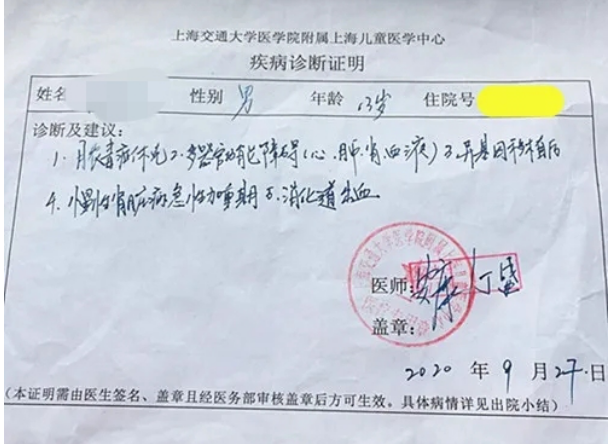 上海交通大学医学院附属上海儿童医学中心
疾病诊断证明
姓名 性别 男 年龄 13岁 住院号
诊断及建议：
1. 脓毒症休克 2. 多器官功能障碍（心.肺.肾.血液）3. 异基因移植后
4. 慢性肾脏病急性加重期 5. 消化道出血
医师： 丁盛
盖章：
2020 年 9 月 27 日
（本证明需由医生签名、盖章且经医务部审核盖章后方可生效。具体病情详见出院小结）